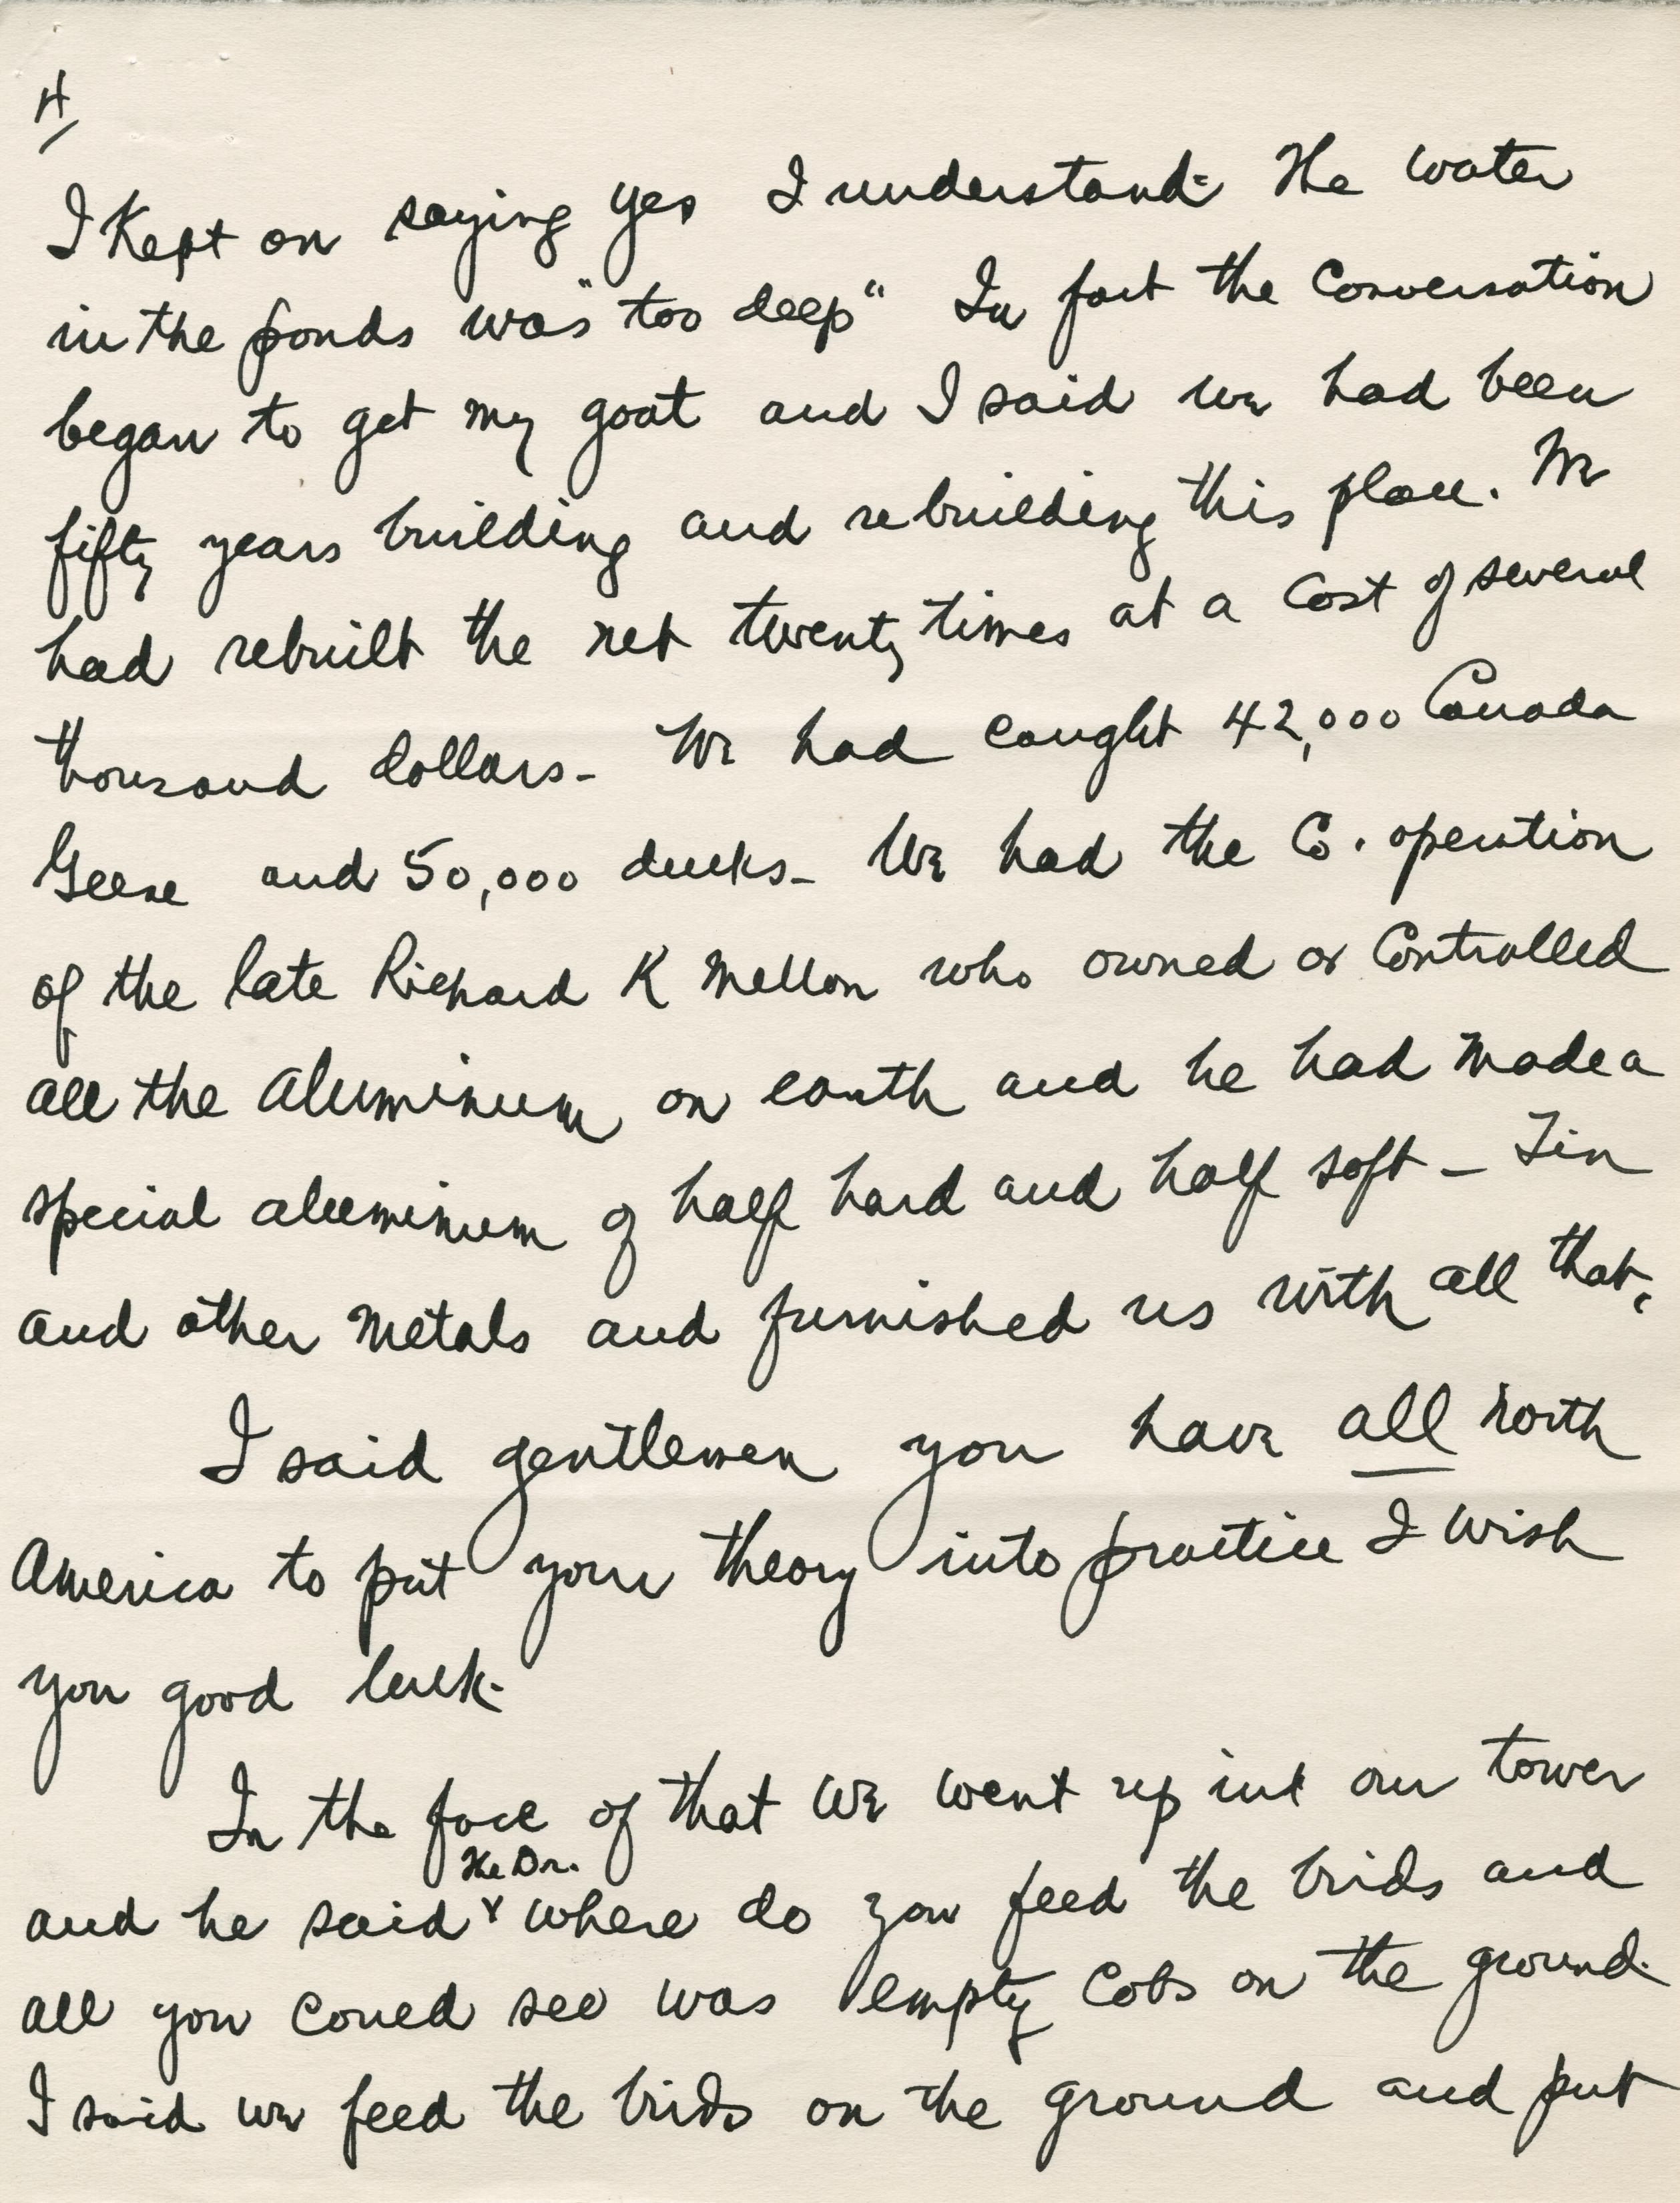 4/
I Kept on saying yes I understand- The water
in the ponds was "too deep" In fact the Conversation
began to get my goat and I said we had been
fifty years building and rebuilding this place. We
had rebuilt the net twenty times at a Cost of several
thousand dollars- We had caught 42,000 Canada
Geese and 50,000 ducks- We had the Co. operation
of the late Richard K Mellon who owned or Controlled
all the aluminum on earth and he had made a
special aluminum of half hard and half soft - Tin
and other metals and furnished us with all that.
I said gentlemen you have all north
America to put your theory into practice I wish
you good luck-
In the face of that we went up int our tower
The Dr.
and he said where do you feed the birds and
all you could see was empty Cobs on the ground.
I said we feed the birds on the ground and put